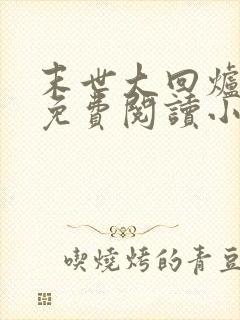 末世大回爐
免費閱讀小
喫燒烤的青豆